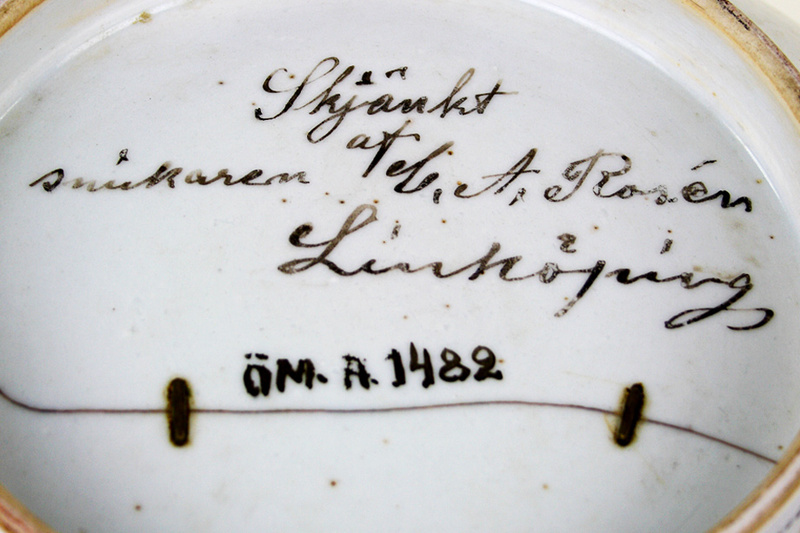 Skjänkt
af
snickaren C. A. Rosén
Linköping
ÖM. A. 1482